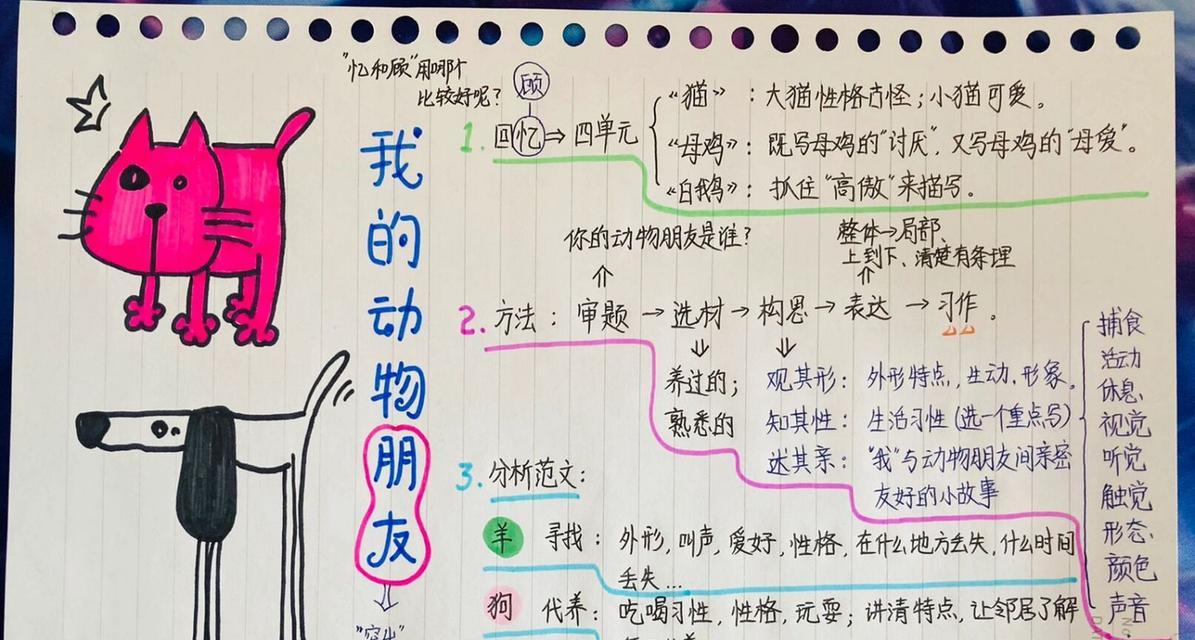 "忆和顾"用哪个
比较好呢?
顾
1. 回忆⇒四单元
《猫》：大猫性格古怪；小猫可爱。
《母鸡》：既写母鸡的"讨厌"，又写母鸡的"母爱"。
《白鹅》：抓住"高傲"来描写。
我的动物朋友
你的动物朋友是谁?
整体→局部、
上到下、清楚有条理
2. 方法：审题→选材→构思→表达→习作。
养过的；
熟悉的
观其形：外形特点，生动，形象。
知其性：生活习性(选一个重点写)
述其亲："我"与动物朋友间亲密
友好的小故事
捕食
活动
休息、
视觉
听觉
触觉
形态、
颜色
声音
3. 分析范文：
羊 寻找：外形，叫声，爱好，性格，在什么地方丢失，什么时间
丢失...
狗 代养：吃喝习性，性格，玩耍；讲清特点，让邻居了解